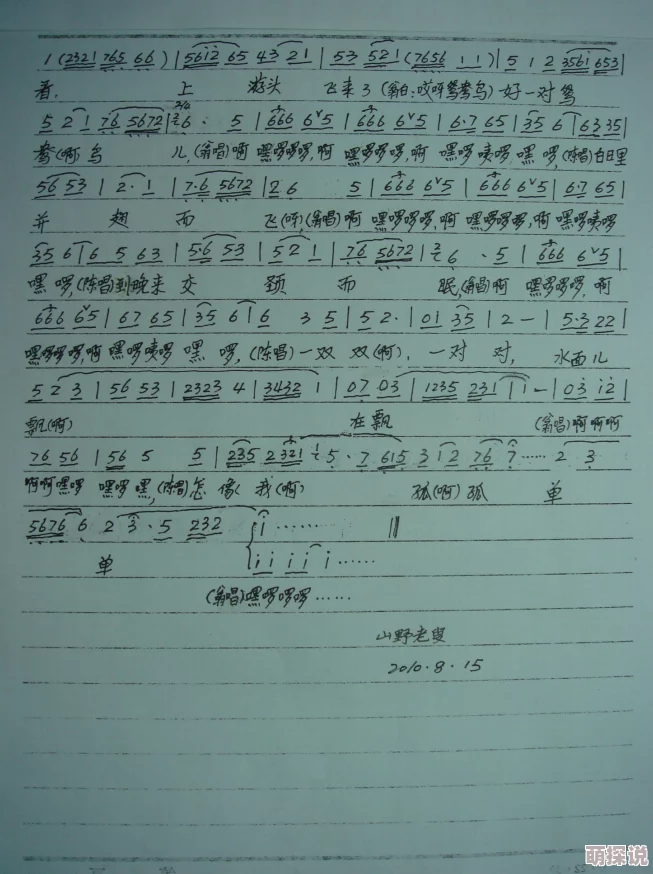 1 (2321 765 66) | 5612 65 43 21 | 53 521 (7656 11) | 5 1 2 3561 653 |
看, 上 游头 飞来了 (翁白:哎呀鸳鸯鸟) 好一对鸳
5 2 1 76 5672 | 2/4 6 · 5 | 666 6ˇ5 | 666 6ˇ5 | 6·7 65 | 35 6 | 6335 |
鸯(啊)鸟 儿, (翁唱)啊 嘿啰啰啰, 啊 嘿啰啰啰, 啊 嘿啰咦啰 嘿 啰, (陈唱)白日里
56 53 | 2 · 1 | 7·6 5672 | 2 6 5 | 666 6ˇ5 | 666 6ˇ5 | 6·7 65 |
并 翅 而 飞(呀), (翁唱)啊 嘿啰啰啰, 啊 嘿啰啰啰, 啊 嘿啰咦啰
35 6 | 6 5 63 | 5·6 53 | 52 1 | 76 5672 | 6 · 5 | 666 6ˇ5 |
嘿 啰, (陈唱)到晚来 交 颈 而 眠, (翁唱)啊 嘿啰啰啰, 啊
666 6ˇ5 | 67 65 | 35 6 | 6 3 5 | 5 2· | 01 35 | 2 — | 5·3 22 |
嘿啰啰啰, 啊 嘿啰咦啰 嘿 啰, (陈唱)一双 双(啊), 一对 对, 水面儿
5 2 3 | 56 53 | 2323 4 | 3432 1 | 07 03 | 1235 231 | 1 — | 03 12 |
飘(啊) 在飘 (翁唱)啊啊啊
76 56 | 56 5 5 | 235 2321 5 · 7 615 3 1 2 76 7 ······ 2 3
啊啊嘿啰 嘿啰嘿, (陈唱)怎 像 我(啊) 孤(啊)孤 单
5676 6 2 3 · 5 232 i ········
单 i i i i i ······
(翁唱)嘿啰啰啰······
山野老叟
2010·8·15
萌探说